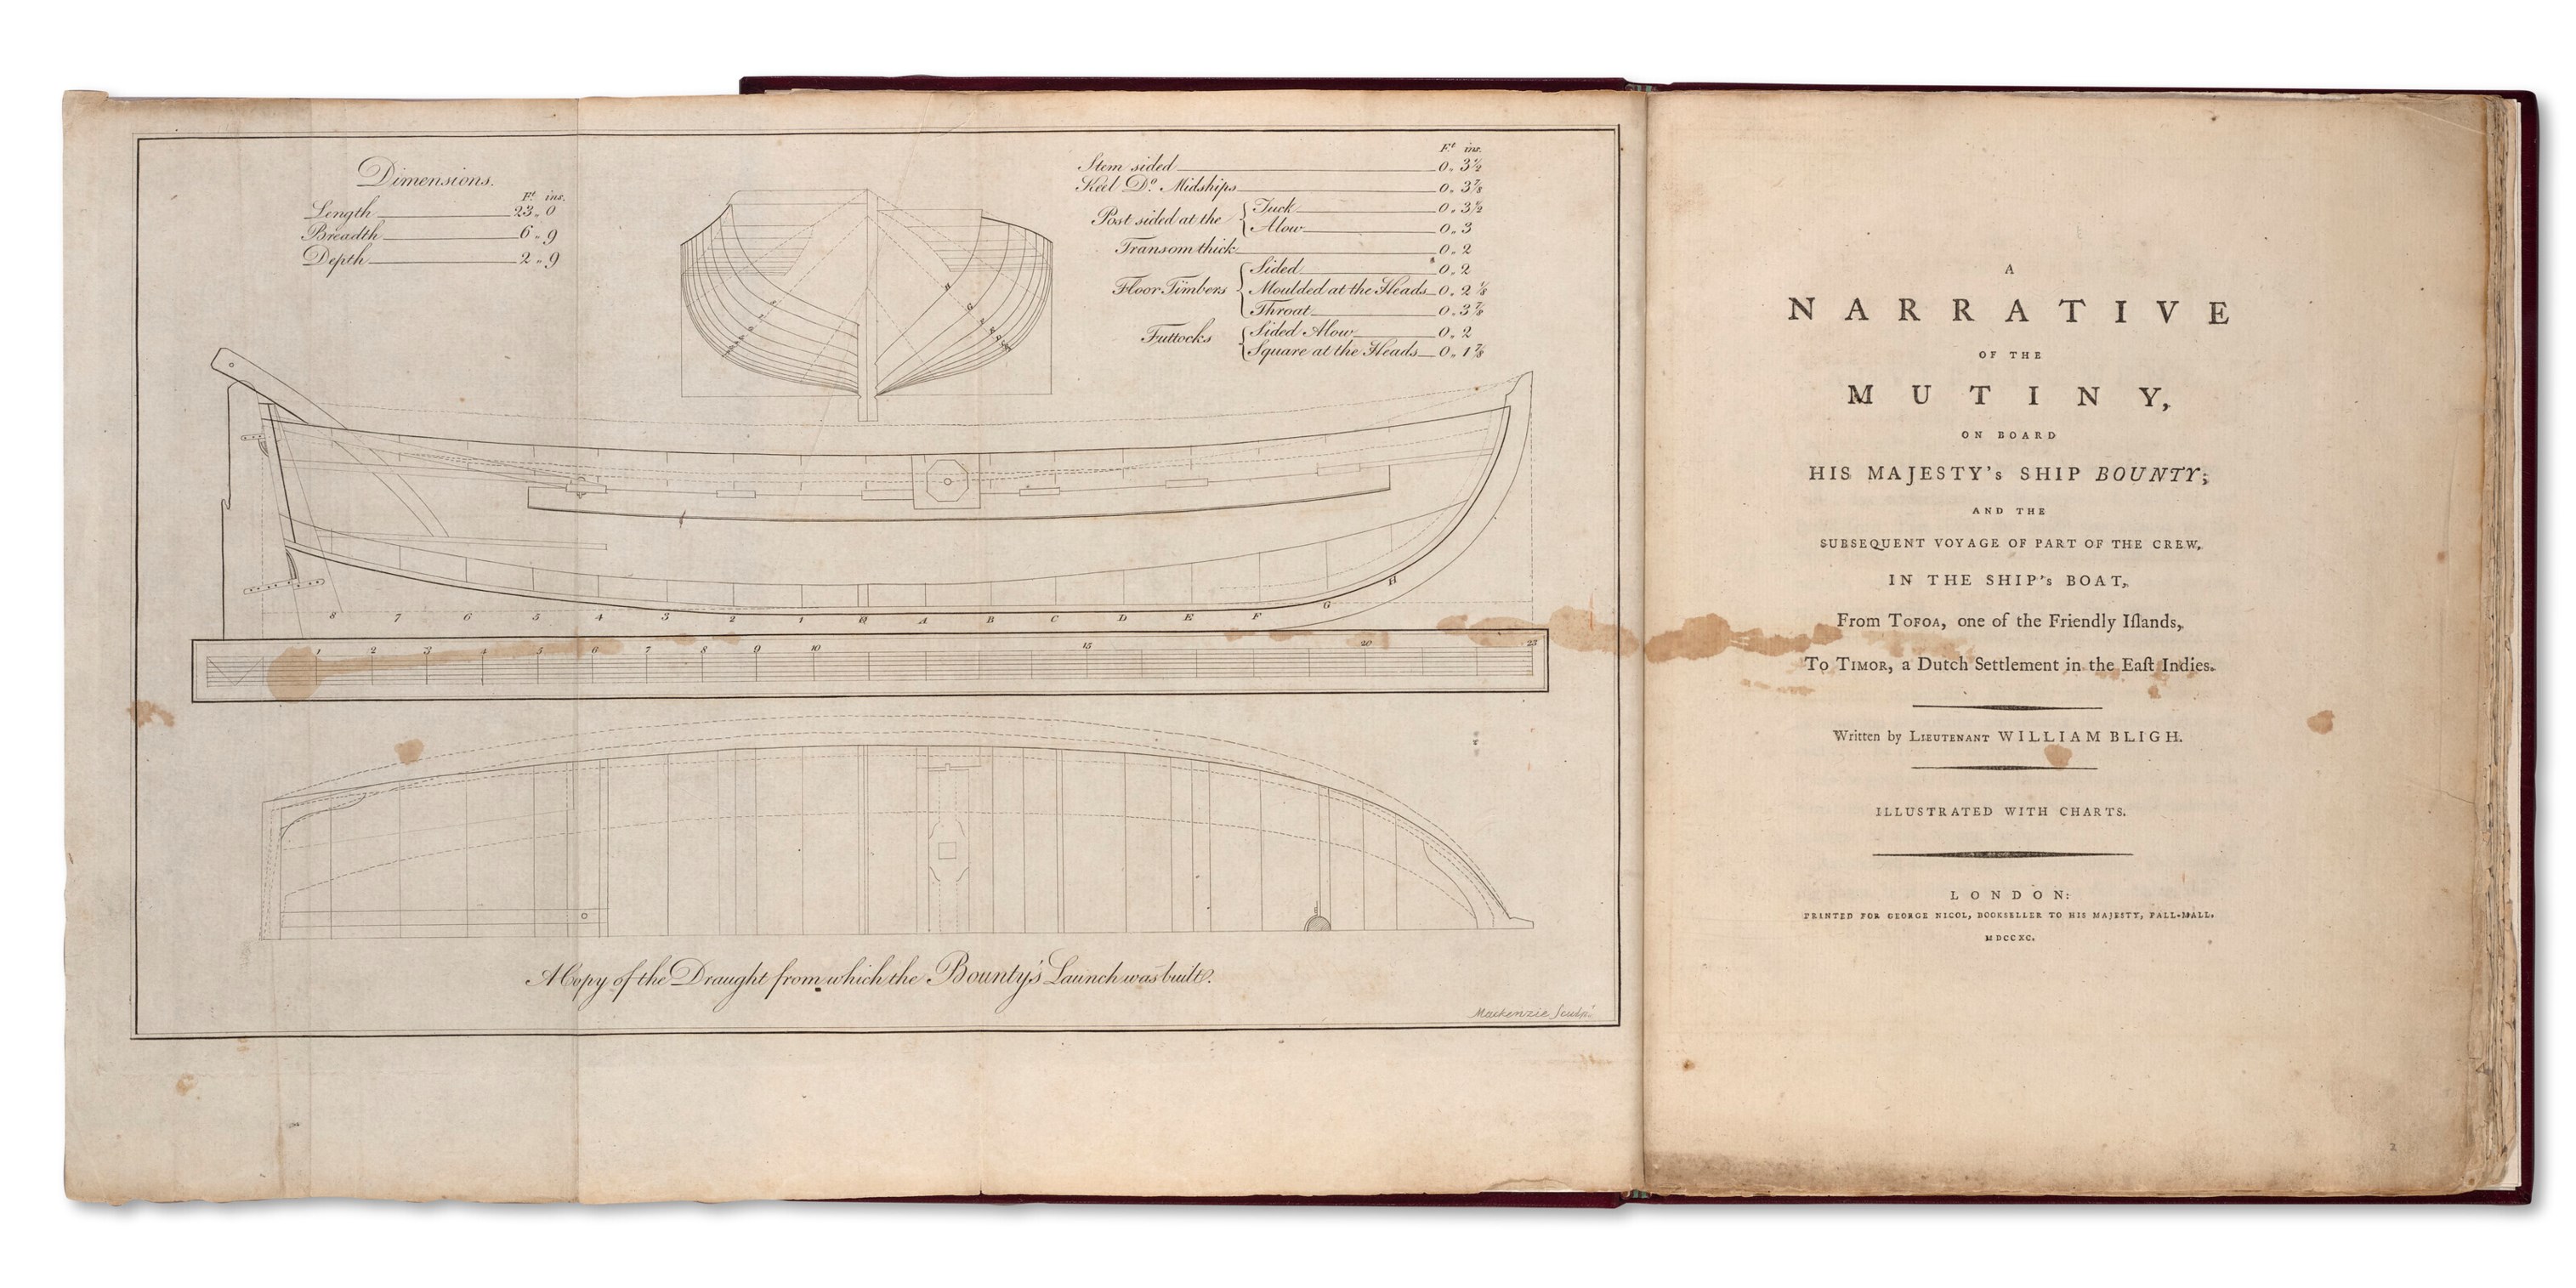 Dimensions.
Ft ins.
Length 23 „ 0
Breadth 6 „ 9
Depth 2 „ 9
Ft ins.
Stem sided 0 „ 3½
Keel Do. Midships 0 „ 3⅞
Post sided at the { Tuck 0 „ 3½
Alow 0 „ 3
Transom thick 0 „ 2
Floor Timbers { Sided 0 „ 2
Moulded at the Heads 0 „ 2⅛
Throat 0 „ 3⅞
Futtocks { Sided Alow 0 „ 2
Square at the Heads 0 „ 1⅞
8 7 6 5 4 3 2 1 A B C D E F G H
1 2 3 4 5 6 7 8 9 10 15 20 23
A Copy of the Draught from which the Bounty's Launch was built.
Mackenzie Sculpt.
A
NARRATIVE
OF THE
MUTINY,
ON BOARD
HIS MAJESTY's SHIP BOUNTY;
AND THE
SUBSEQUENT VOYAGE OF PART OF THE CREW,
IN THE SHIP's BOAT,
From TOFOA, one of the Friendly Iſlands,
To TIMOR, a Dutch Settlement in the Eaſt Indies.
Written by LIEUTENANT WILLIAM BLIGH.
ILLUSTRATED WITH CHARTS.
LONDON:
PRINTED FOR GEORGE NICOL, BOOKSELLER TO HIS MAJESTY, PALL-MALL.
MDCCXC.
2